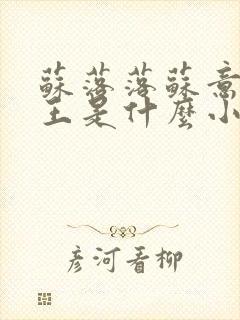 蘇落落蘇意
主是什麼小
彥河看柳